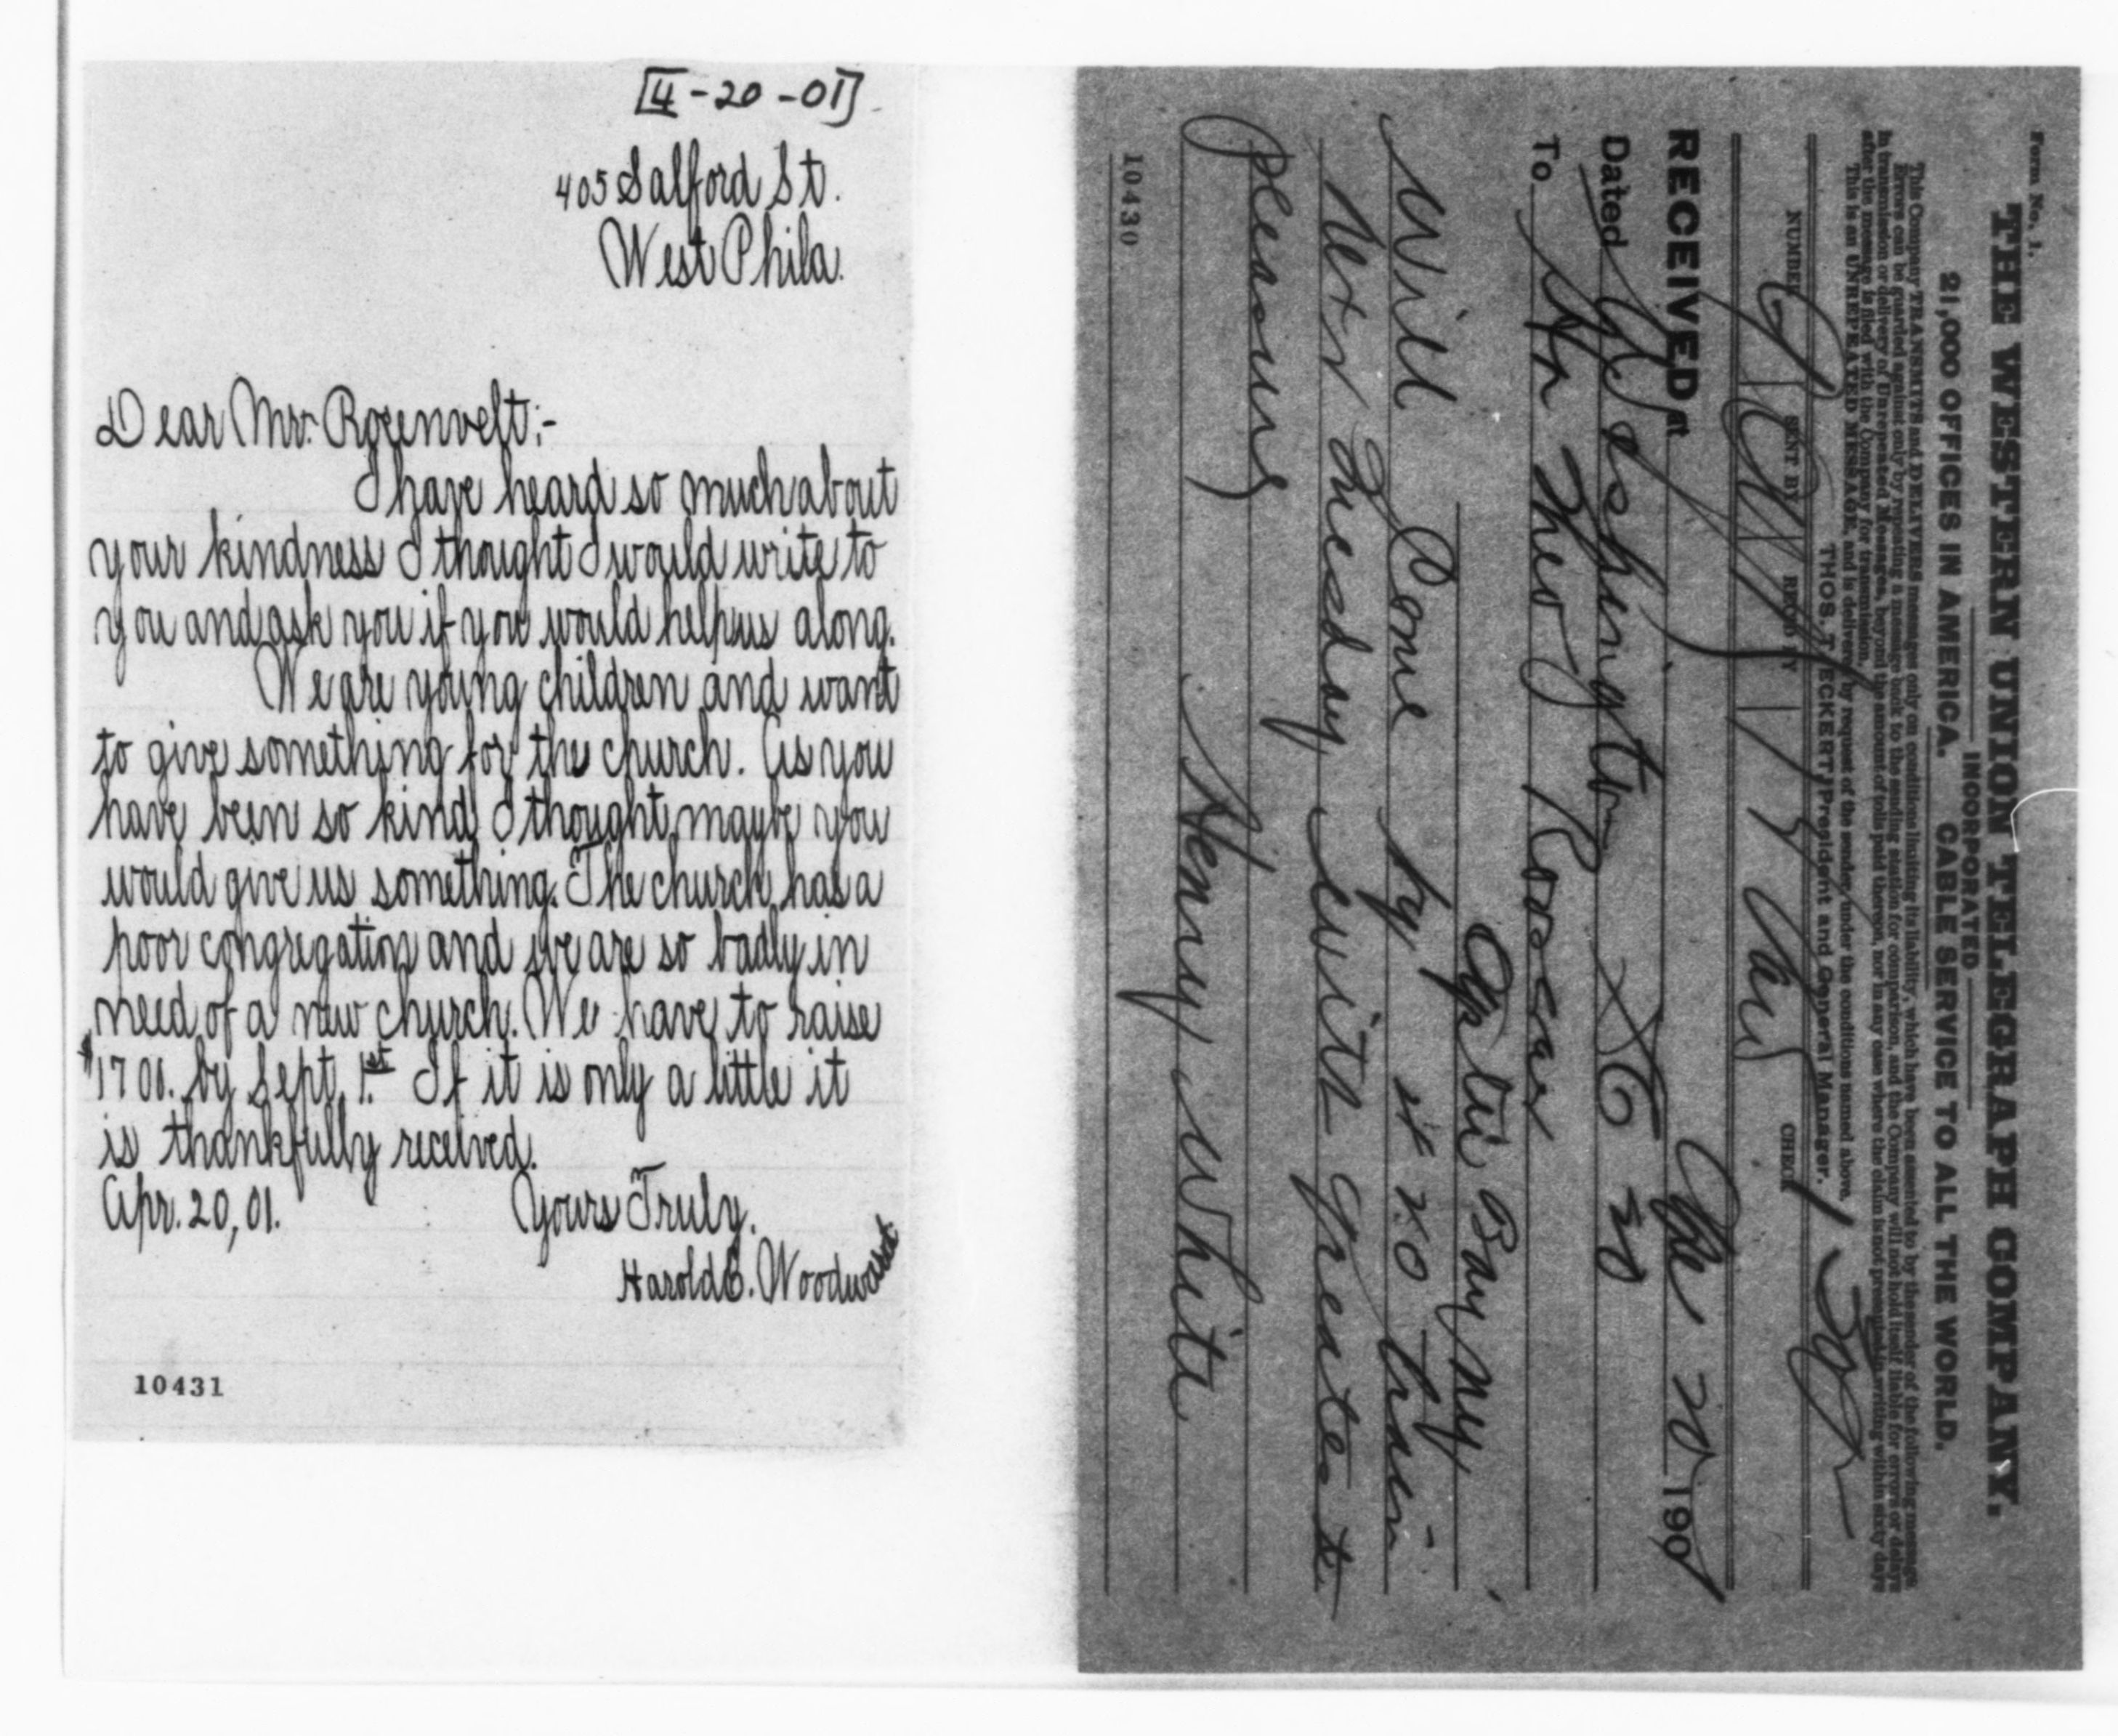 [4-20-01]
405 Salford St.
West Phila.
Dear Mr. Rosenvelt:-
I have heard so much about
your kindness I thought I would write to
you and ask you if you would help us along.
We are young children and want
to give something for the church. As you
have been so kind I thought maybe you
would give us something. The church has a
poor congregation and we are so badly in
need of a new church. We have to raise
$1700. by Sept. 1st. If it is only a little it
is thankfully received.
Apr. 20, 01. Yours Truly.
Harold C. Woodward.
10431
Form No. 1.
THE WESTERN UNION TELEGRAPH COMPANY.
INCORPORATED
21,000 OFFICES IN AMERICA. CABLE SERVICE TO ALL THE WORLD.
This Company TRANSMITS and DELIVERS messages only on conditions limiting its liability, which have been assented to by the sender of the following message.
Errors can be guarded against only by repeating a message back to the sending station for comparison, and the Company will not hold itself liable for errors or delays
in transmission or delivery of Unrepeated Messages, beyond the amount of tolls paid thereon, nor in any case where the claim is not presented in writing within sixty days
after the message is filed with the Company for transmission.
This is an UNREPEATED MESSAGE, and is delivered by request of the sender, under the conditions named above.
THOS. T. ECKERT, President and General Manager.
NUMBER SENT BY REC'D BY CHECK
RECEIVED at 190
Dated Washington 20
To Hn Theo Roosevar
Oyster Bay NY
Will Come by 420 train
Next Tuesday with greatest
pleasure
Henry White
10430